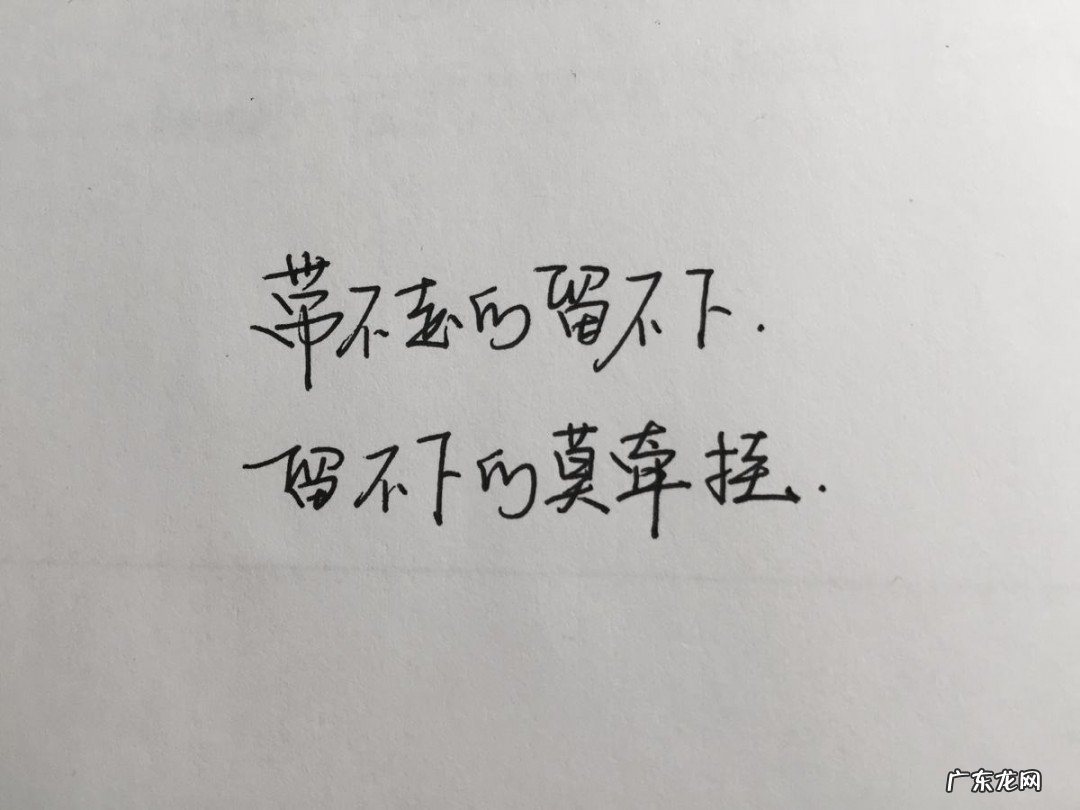 带不走的留不下.
留不下的莫牵挂.
广东龙网